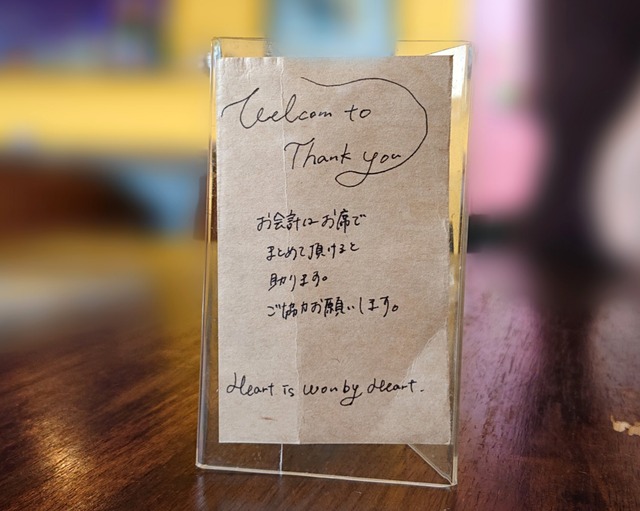 Welcom to
Thank you
お会計はお席で
まとめて頂けると
助ります。
ご協力お願いします。
Heart is won by Heart.